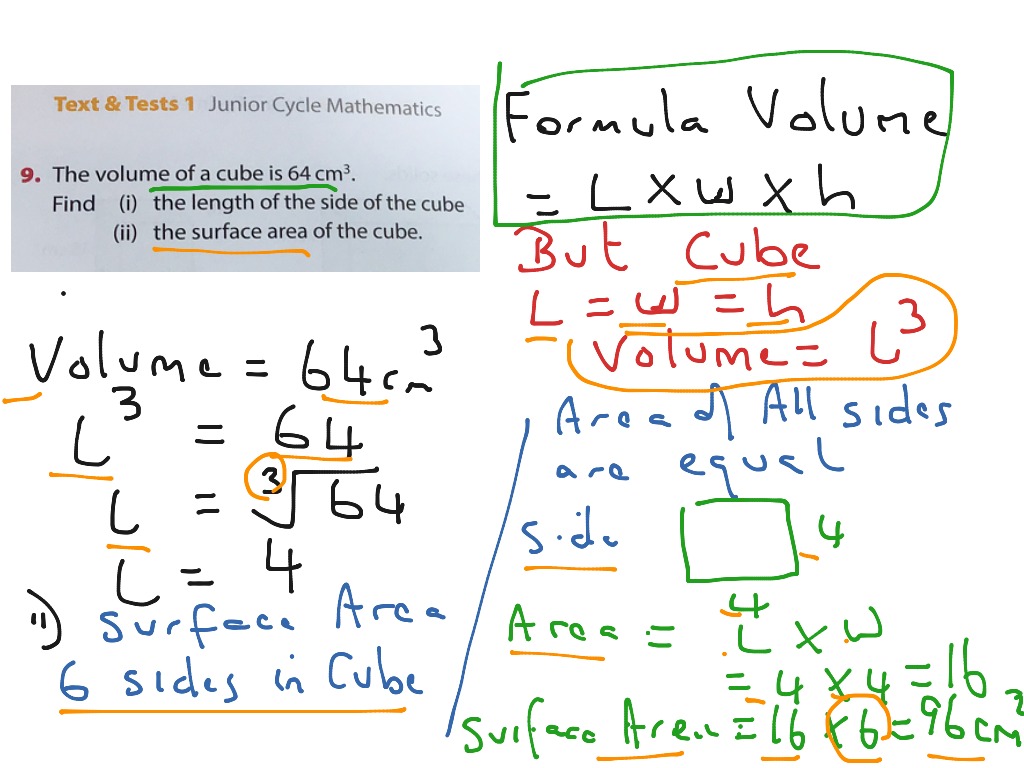 Text & Tests 1 Junior Cycle Mathematics
9. The volume of a cube is 64 cm³.
Find (i) the length of the side of the cube
(ii) the surface area of the cube.
Formula Volume
= L x w x h
But Cube
L = w = h
Volume = L³
Volume = 64cm³
L³ = 64
L = ³√64
L = 4
ii) Surface Area
6 sides in Cube
Area of All sides
are equal
side
4
4
Area = L x w
= 4 x 4 = 16
Surface Area = 16 x 6 = 96cm²